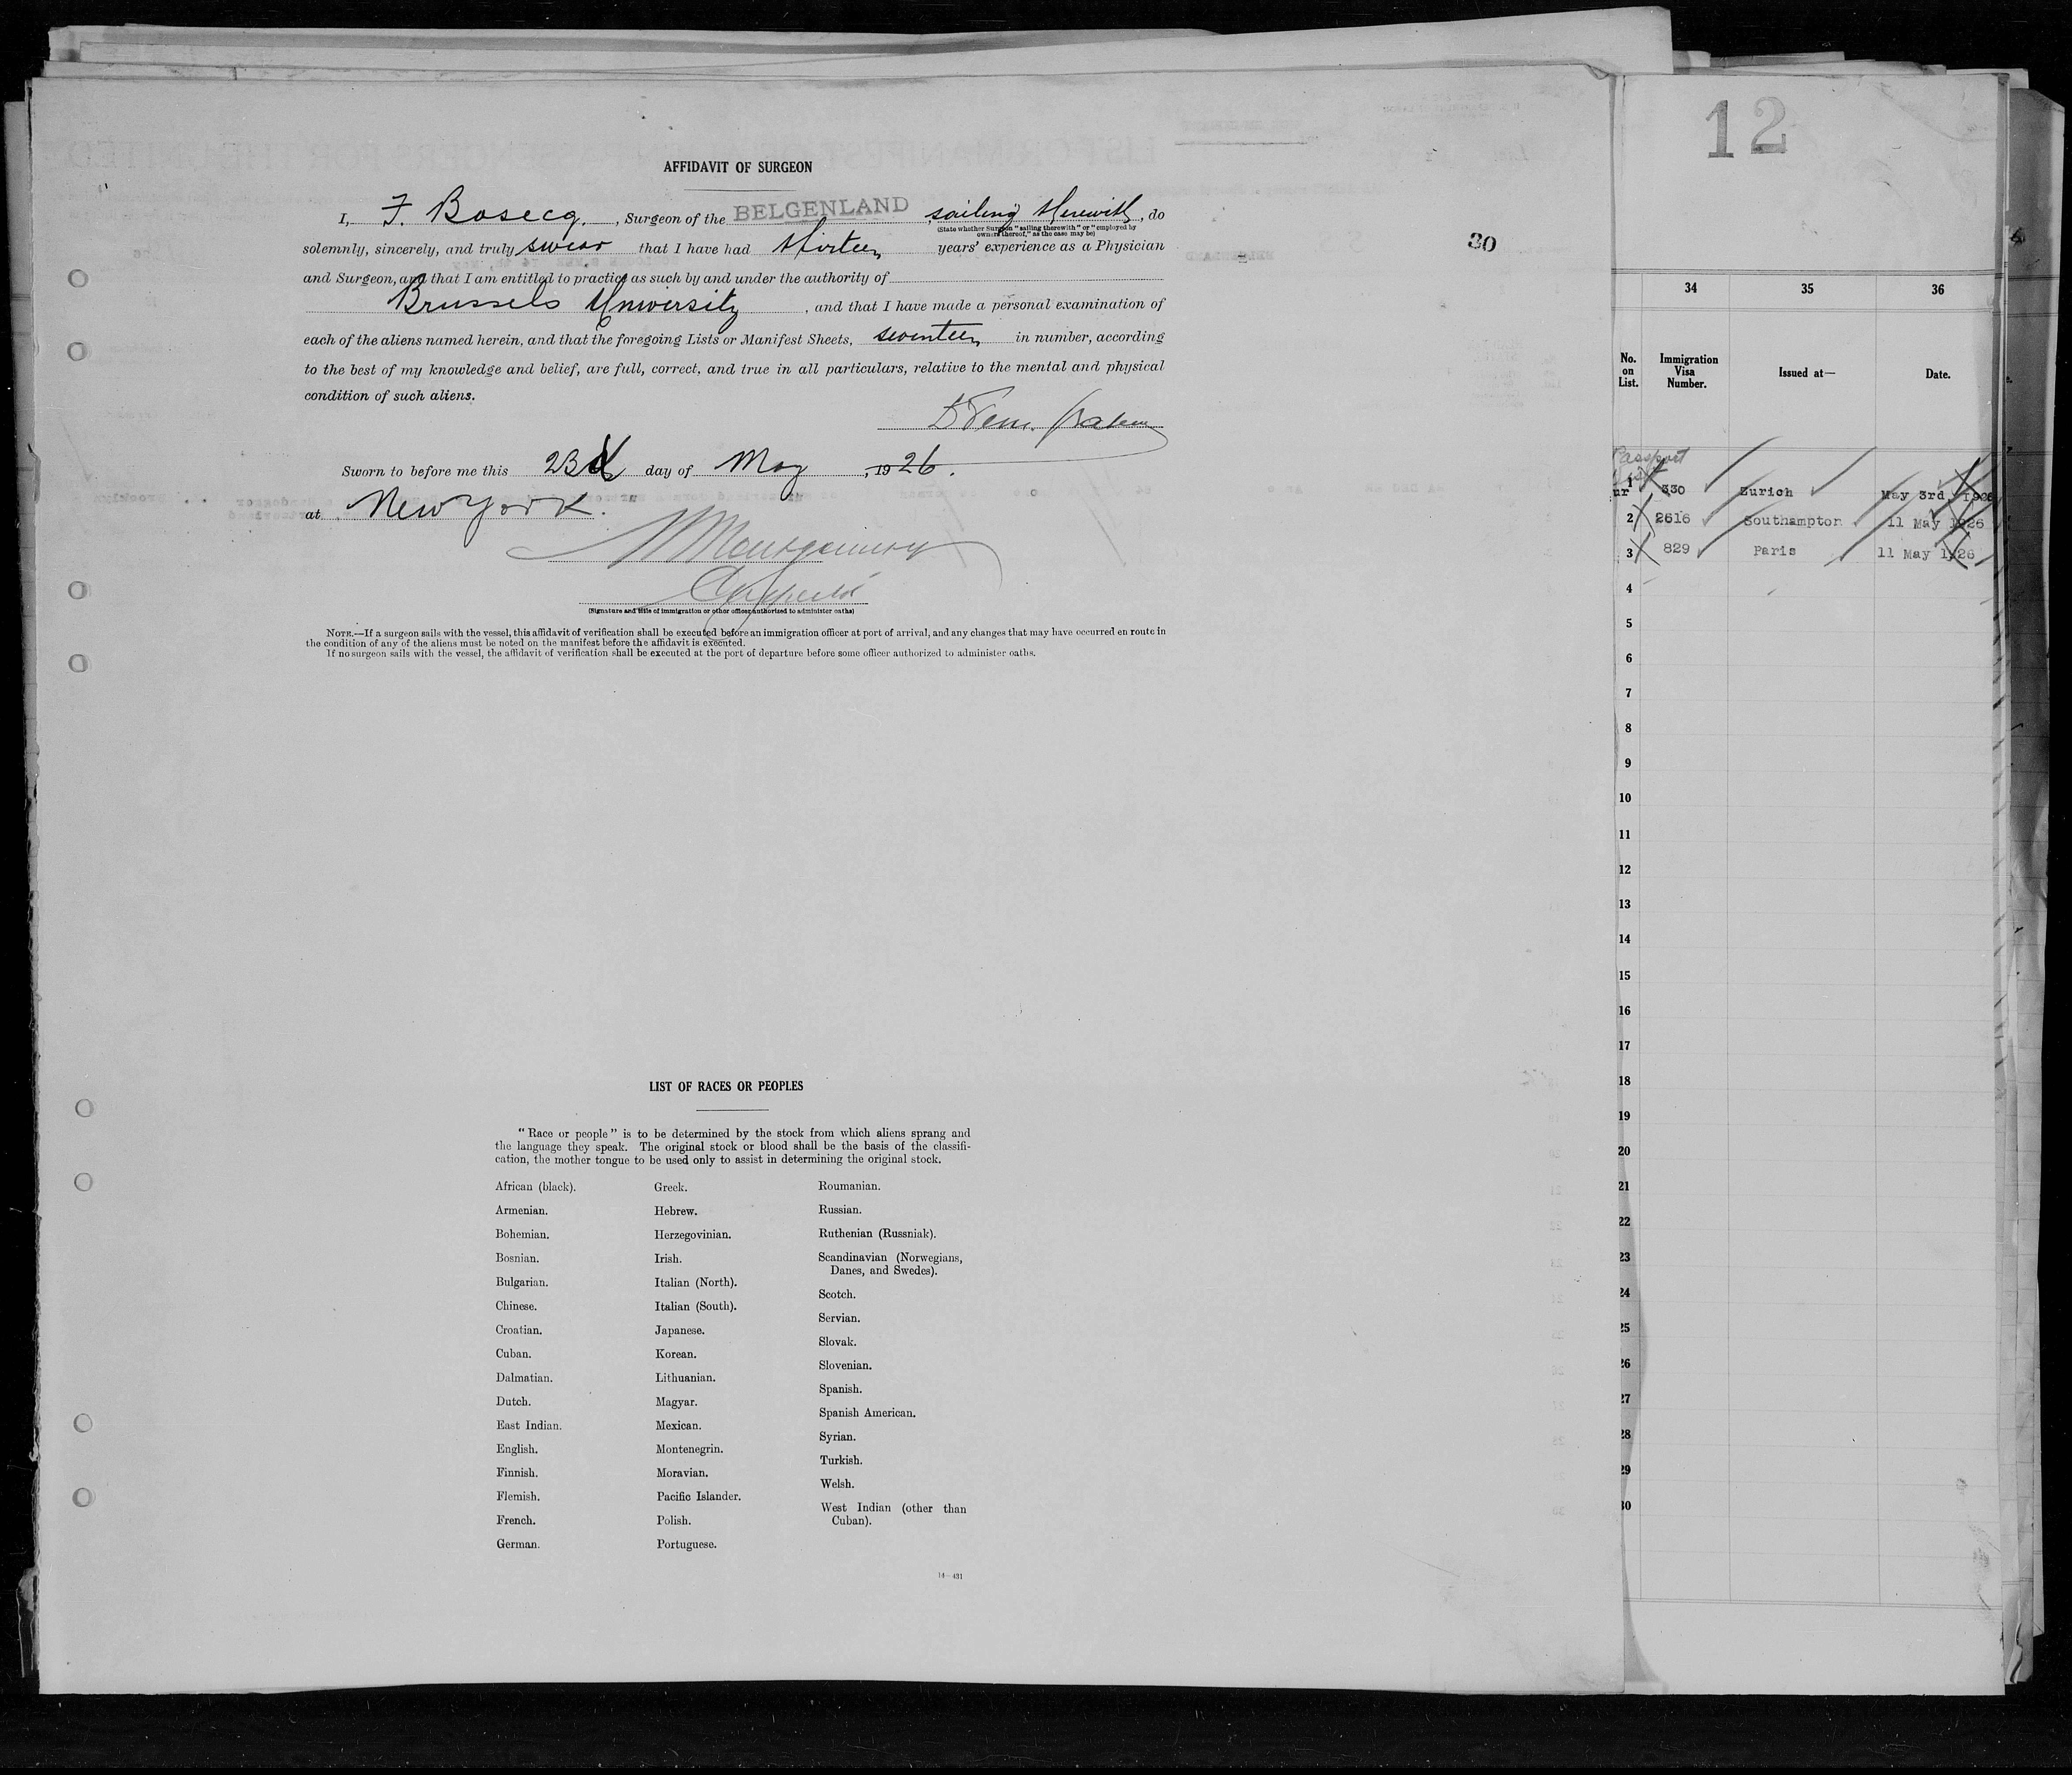 AFFIDAVIT OF SURGEON
I, F. Bosecq. , Surgeon of the BELGENLAND sailing therewith, do
(State whether Surgeon "sailing therewith" or "employed by
owners thereof," as the case may be)
solemnly, sincerely, and truly swear that I have had thirteen years' experience as a Physician
and Surgeon, and that I am entitled to practice as such by and under the authority of
Brussels University , and that I have made a personal examination of
each of the aliens named herein, and that the foregoing Lists or Manifest Sheets, seventeen in number, according
to the best of my knowledge and belief, are full, correct, and true in all particulars, relative to the mental and physical
condition of such aliens.
Sworn to before me this 23d day of May , 1926.
at New York.
Montgomery
(Signature and title of immigration or other officer authorized to administer oaths)
NOTE.—If a surgeon sails with the vessel, this affidavit of verification shall be executed before an immigration officer at port of arrival, and any changes that may have occurred en route in
the condition of any of the aliens must be noted on the manifest before the affidavit is executed.
If no surgeon sails with the vessel, the affidavit of verification shall be executed at the port of departure before some officer authorized to administer oaths.
30
LIST OF RACES OR PEOPLES
"Race or people" is to be determined by the stock from which aliens sprang and
the language they speak. The original stock or blood shall be the basis of the classifi-
cation, the mother tongue to be used only to assist in determining the original stock.
African (black).
Armenian.
Bohemian.
Bosnian.
Bulgarian.
Chinese.
Croatian.
Cuban.
Dalmatian.
Dutch.
East Indian.
English.
Finnish.
Flemish.
French.
German.
Greek.
Hebrew.
Herzegovinian.
Irish.
Italian (North).
Italian (South).
Japanese.
Korean.
Lithuanian.
Magyar.
Mexican.
Montenegrin.
Moravian.
Pacific Islander.
Polish.
Portuguese.
Roumanian.
Russian.
Ruthenian (Russniak).
Scandinavian (Norwegians,
Danes, and Swedes).
Scotch.
Servian.
Slovak.
Slovenian.
Spanish.
Spanish American.
Syrian.
Turkish.
Welsh.
West Indian (other than
Cuban).
14—431
12
34 35 36
No. on List. Immigration Visa Number. Issued at— Date.
Passport
1 330 Zurich May 3rd, 1926
2 2616 Southampton 11 May 1926
3 829 Paris 11 May 1926
4
5
6
7
8
9
10
11
12
13
14
15
16
17
18
19
20
21
22
23
24
25
26
27
28
29
30